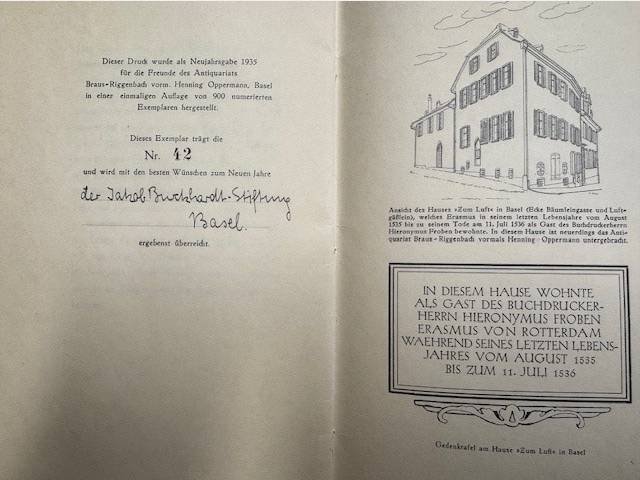 Dieser Druck wurde als Neujahrsgabe 1935
für die Freunde des Antiquariats
Braus-Riggenbach vorm. Henning Oppermann, Basel
in einer einmaligen Auflage von 900 numerierten
Exemplaren hergestellt.
Dieses Exemplar trägt die
Nr. 42
und wird mit den besten Wünschen zum Neuen Jahre
der Jakob Burckhardt-Stiftung
Basel.
ergebenst überreicht.
Ansicht des Hauses »Zum Luft« in Basel (Ecke Bäumleingasse und Luft-
gäßlein), welches Erasmus in seinem letzten Lebensjahre vom August
1535 bis zu seinem Tode am 11. Juli 1536 als Gast des Buchdruckerherrn
Hieronymus Froben bewohnte. In diesem Hause ist neuerdings das Anti-
quariat Braus-Riggenbach vormals Henning Oppermann untergebracht.
IN DIESEM HAUSE WOHNTE
ALS GAST DES BUCHDRUCKER-
HERRN HIERONYMUS FROBEN
ERASMUS VON ROTTERDAM
WAEHREND SEINES LETZTEN LEBENS-
JAHRES VOM AUGUST 1535
BIS ZUM 11. JULI 1536
Gedenktafel am Hause »Zum Luft« in Basel